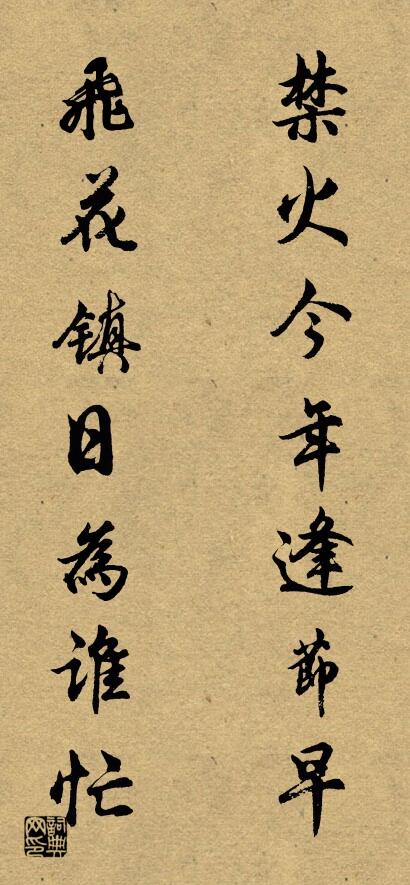 禁火今年逢節早
飛花鎮日為誰忙
詞典網印